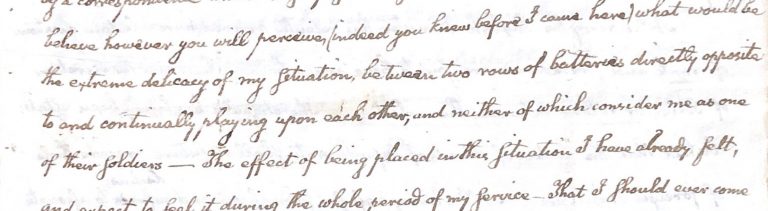 by a correspondence
believe however you will perceive, (indeed you knew before I came here) what would be
the extreme delicacy of my situation, between two rows of batteries directly opposite
to and continually playing upon each other, and neither of which consider me as one
of their soldiers — The effect of being placed in this situation I have already felt,
and expect to feel it during the whole period of my service — That I should ever come